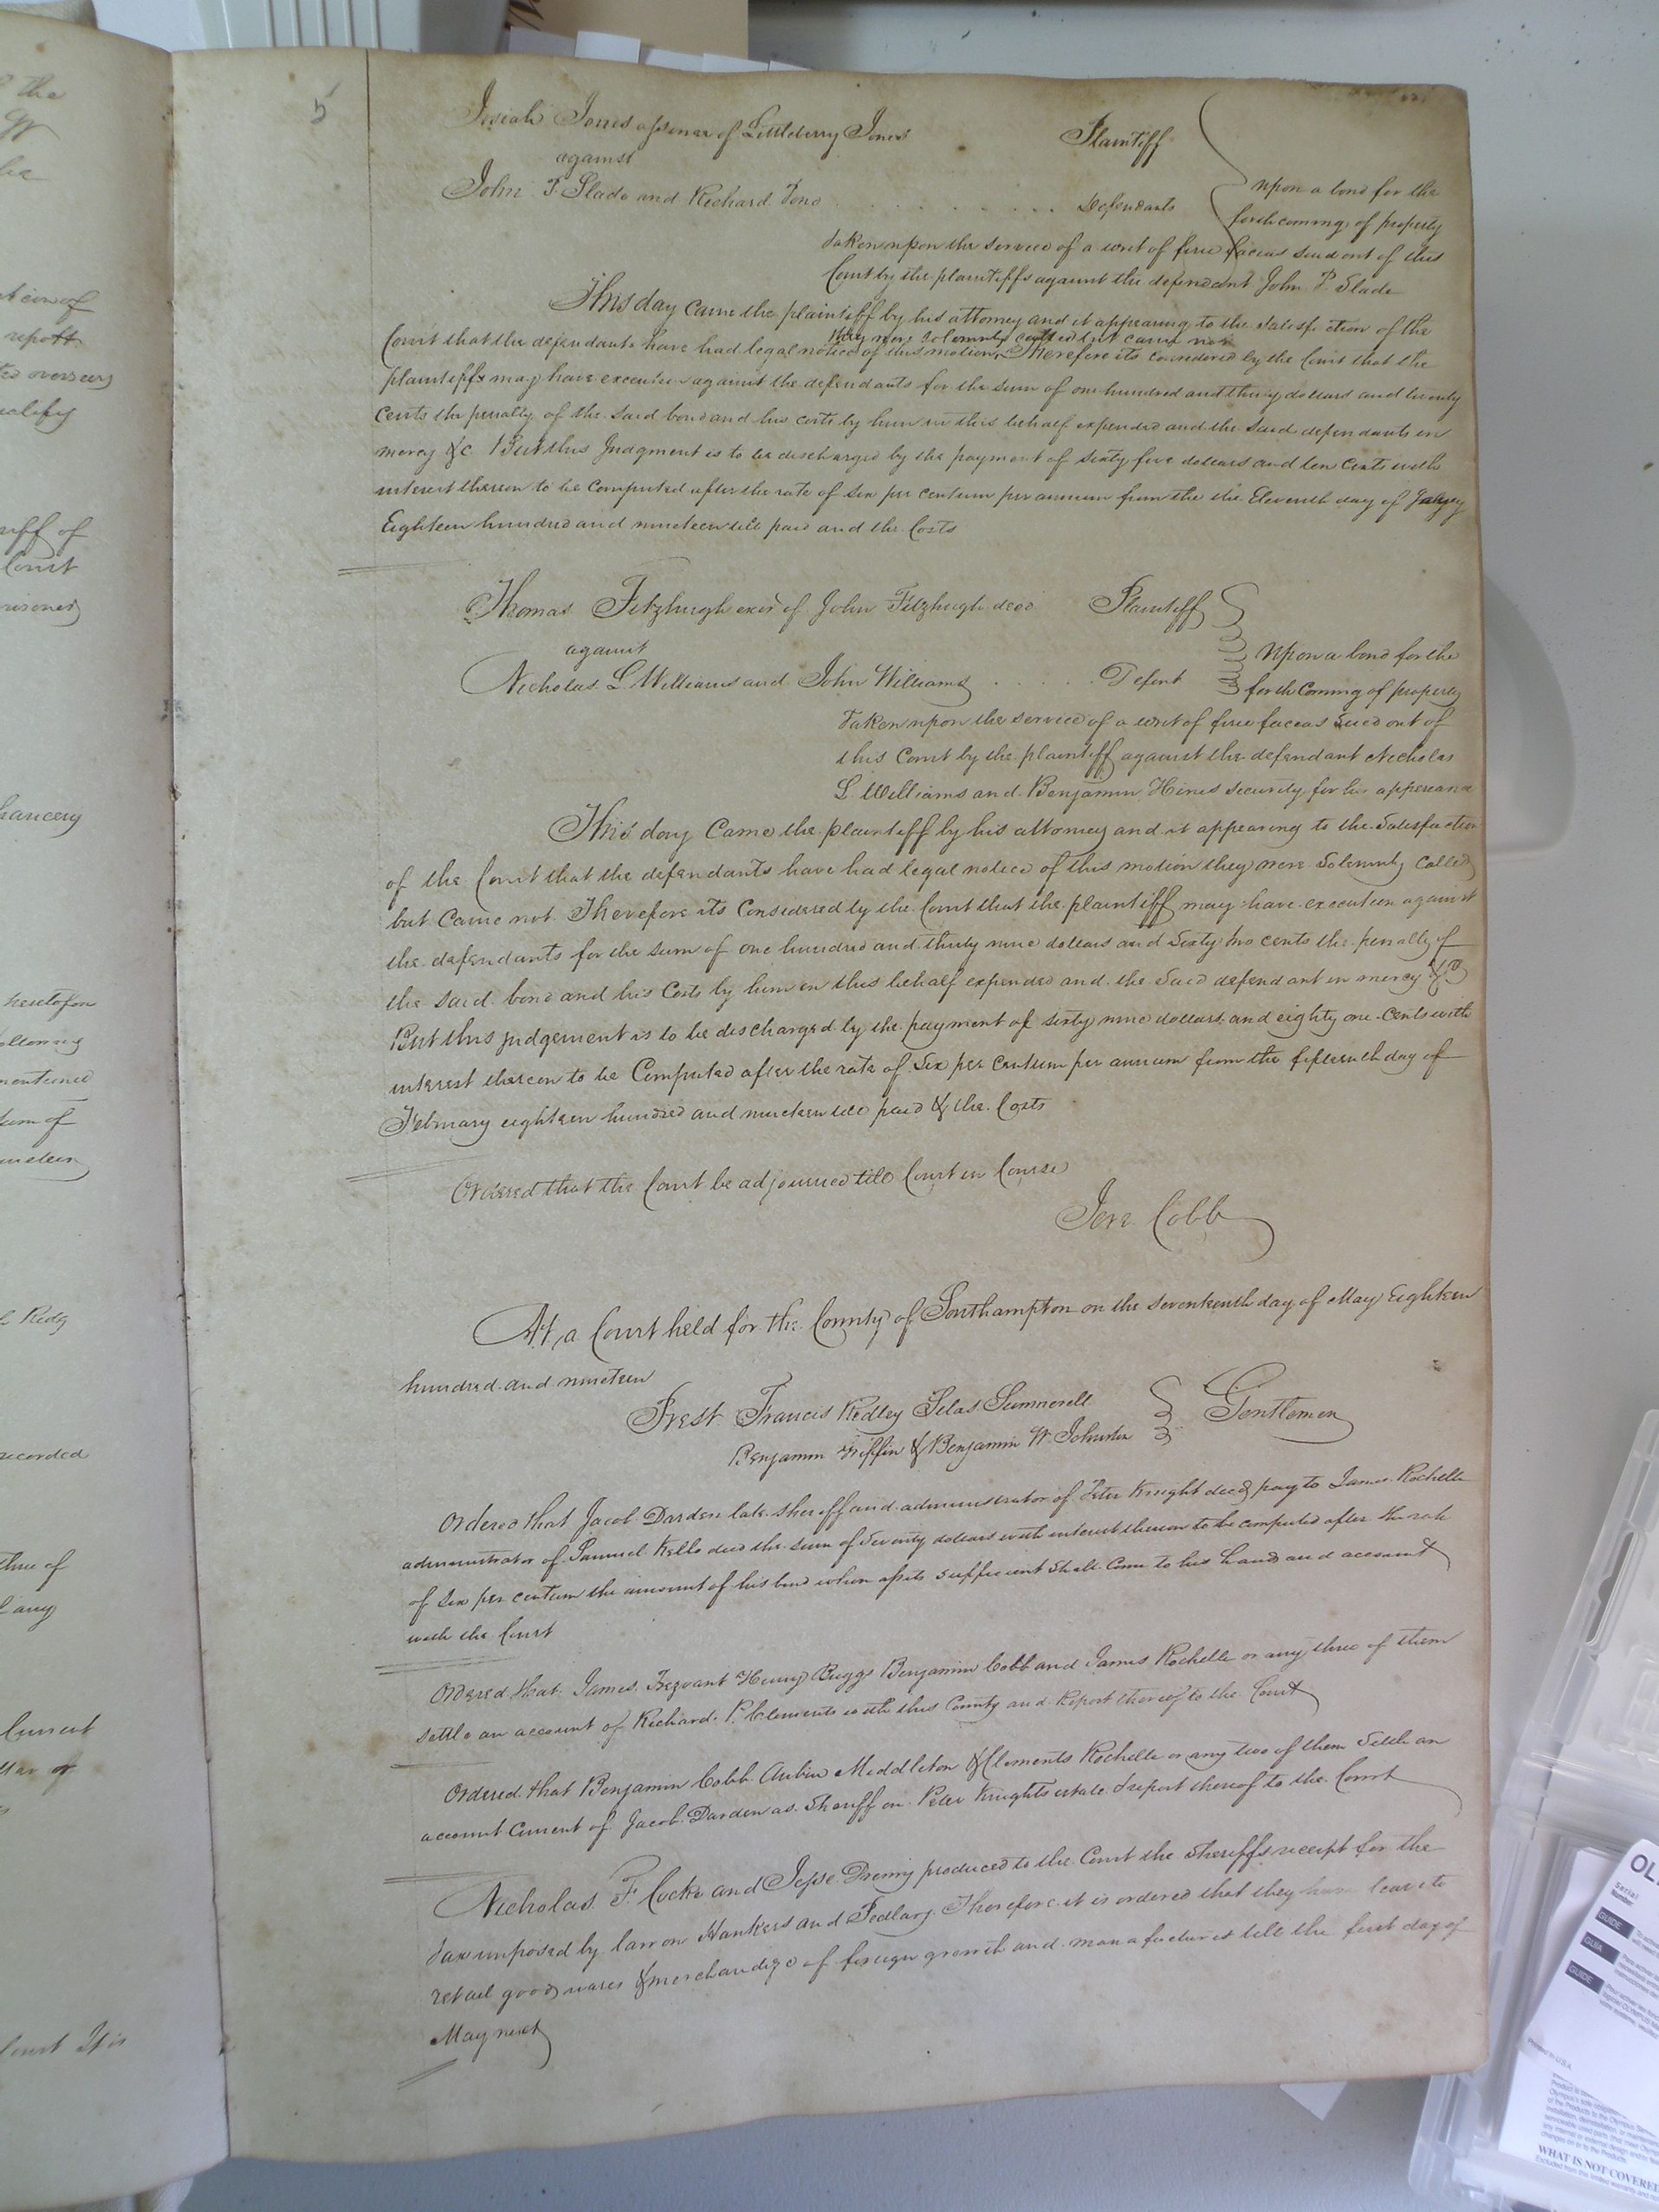 5
Josiah Jones assignee of Littleberry Jones Plaintiff
against
John P. Slade and Richard Pond Defendants
Upon a bond for the
forthcoming of property
taken upon the service of a writ of fieri facias sued out of this
Court by the plaintiffs against the defendant John P. Slade
This day came the plaintiff by his attorney and it appearing to the satisfaction of the
they were solemnly called but came not
Court that the defendants have had legal notice of this motion, Therefore its considered by the Court that the
plaintiffs may have execution against the defendants for the sum of one hundred and thirty dollars and twenty
cents the penalty of the said bond and his costs by him in this behalf expended and the said defendants in
mercy &c But this Judgment is to be discharged by the payment of sixty five dollars and ten Cents with
interest thereon to be Computed after the rate of six per centum per annum from the the Eleventh day of
Eighteen hundred and nineteen till paid and the Costs
Thomas Fitzhugh exor of John Fitzhugh decd Plaintiff
against
Nicholas L. Williams and John Williams Defent
Upon a bond for the
forth Coming of property
taken upon the service of a writ of fieri facias Sued out of
this Court by the plaintiff against the defendant Nicholas
L. Williams and Benjamin Hines security for his appearance
This day Came the plaintiff by his attorney and it appearing to the Satisfaction
of the Court that the defendants have had legal notice of this motion they were Solemnly Called
but Came not Therefore its Considered by the Court that the plaintiff may have execution against
the defendants for the sum of one hundred and thirty nine dollars and Sixty two cents the penalty of
the said bond and his Costs by him in this behalf expended and the Said defendant in mercy &c
But this judgement is to be discharged by the payment of sixty nine dollars and eighty one Cents with
interest thereon to be Computed after the rate of Six per Centum per annum from the fifteenth day of
February eighteen hundred and nineteen till paid & the Costs
Ordered that the Court be adjourned till Court in Course
Jere Cobb
At a Court held for the County of Southampton on the Seventeenth day of May Eighteen
hundred and nineteen
Prest Francis Ridley Silas Summerell
Gentlemen
Benjamin Griffin & Benjamin W Johnston
Ordered that Jacob Darden late sheriff and administrator of Peter Knight decd pay to James Rochelle
administrator of Samuel Kello decd the sum of Seventy dollars with interest thereon to be computed after the rate
of Six per centum the amount of his bond when assets sufficient Shall Come to his hands and account
with the Court
Ordered that James Trezvant Henry Briggs Benjamin Cobb and James Rochelle or any three of them
settle an account of Richard P. Clements with this County and Report thereof to the Court
Ordered that Benjamin Cobb Aubin Middleton & Clements Rochelle or any two of them Settle an
account Current of Jacob Darden as Sheriff on Peter Knights estate & report thereof to the Court
Nicholas F. Cocke and Jesse produced to the Court the Sheriffs receipt for the
Tax imposed by law on Hawkers and Pedlars Therefore it is ordered that they have leave to
retail goods wares & merchandize of foreign growth and manafactures till the first day of
May next
the
report
overseers
Court
hancery
heretofore
sum of
recorded
any
Current
Court It is
Serial
Number
GUIDE
GUIA
GUIDE
WHAT IS NOT COVERED